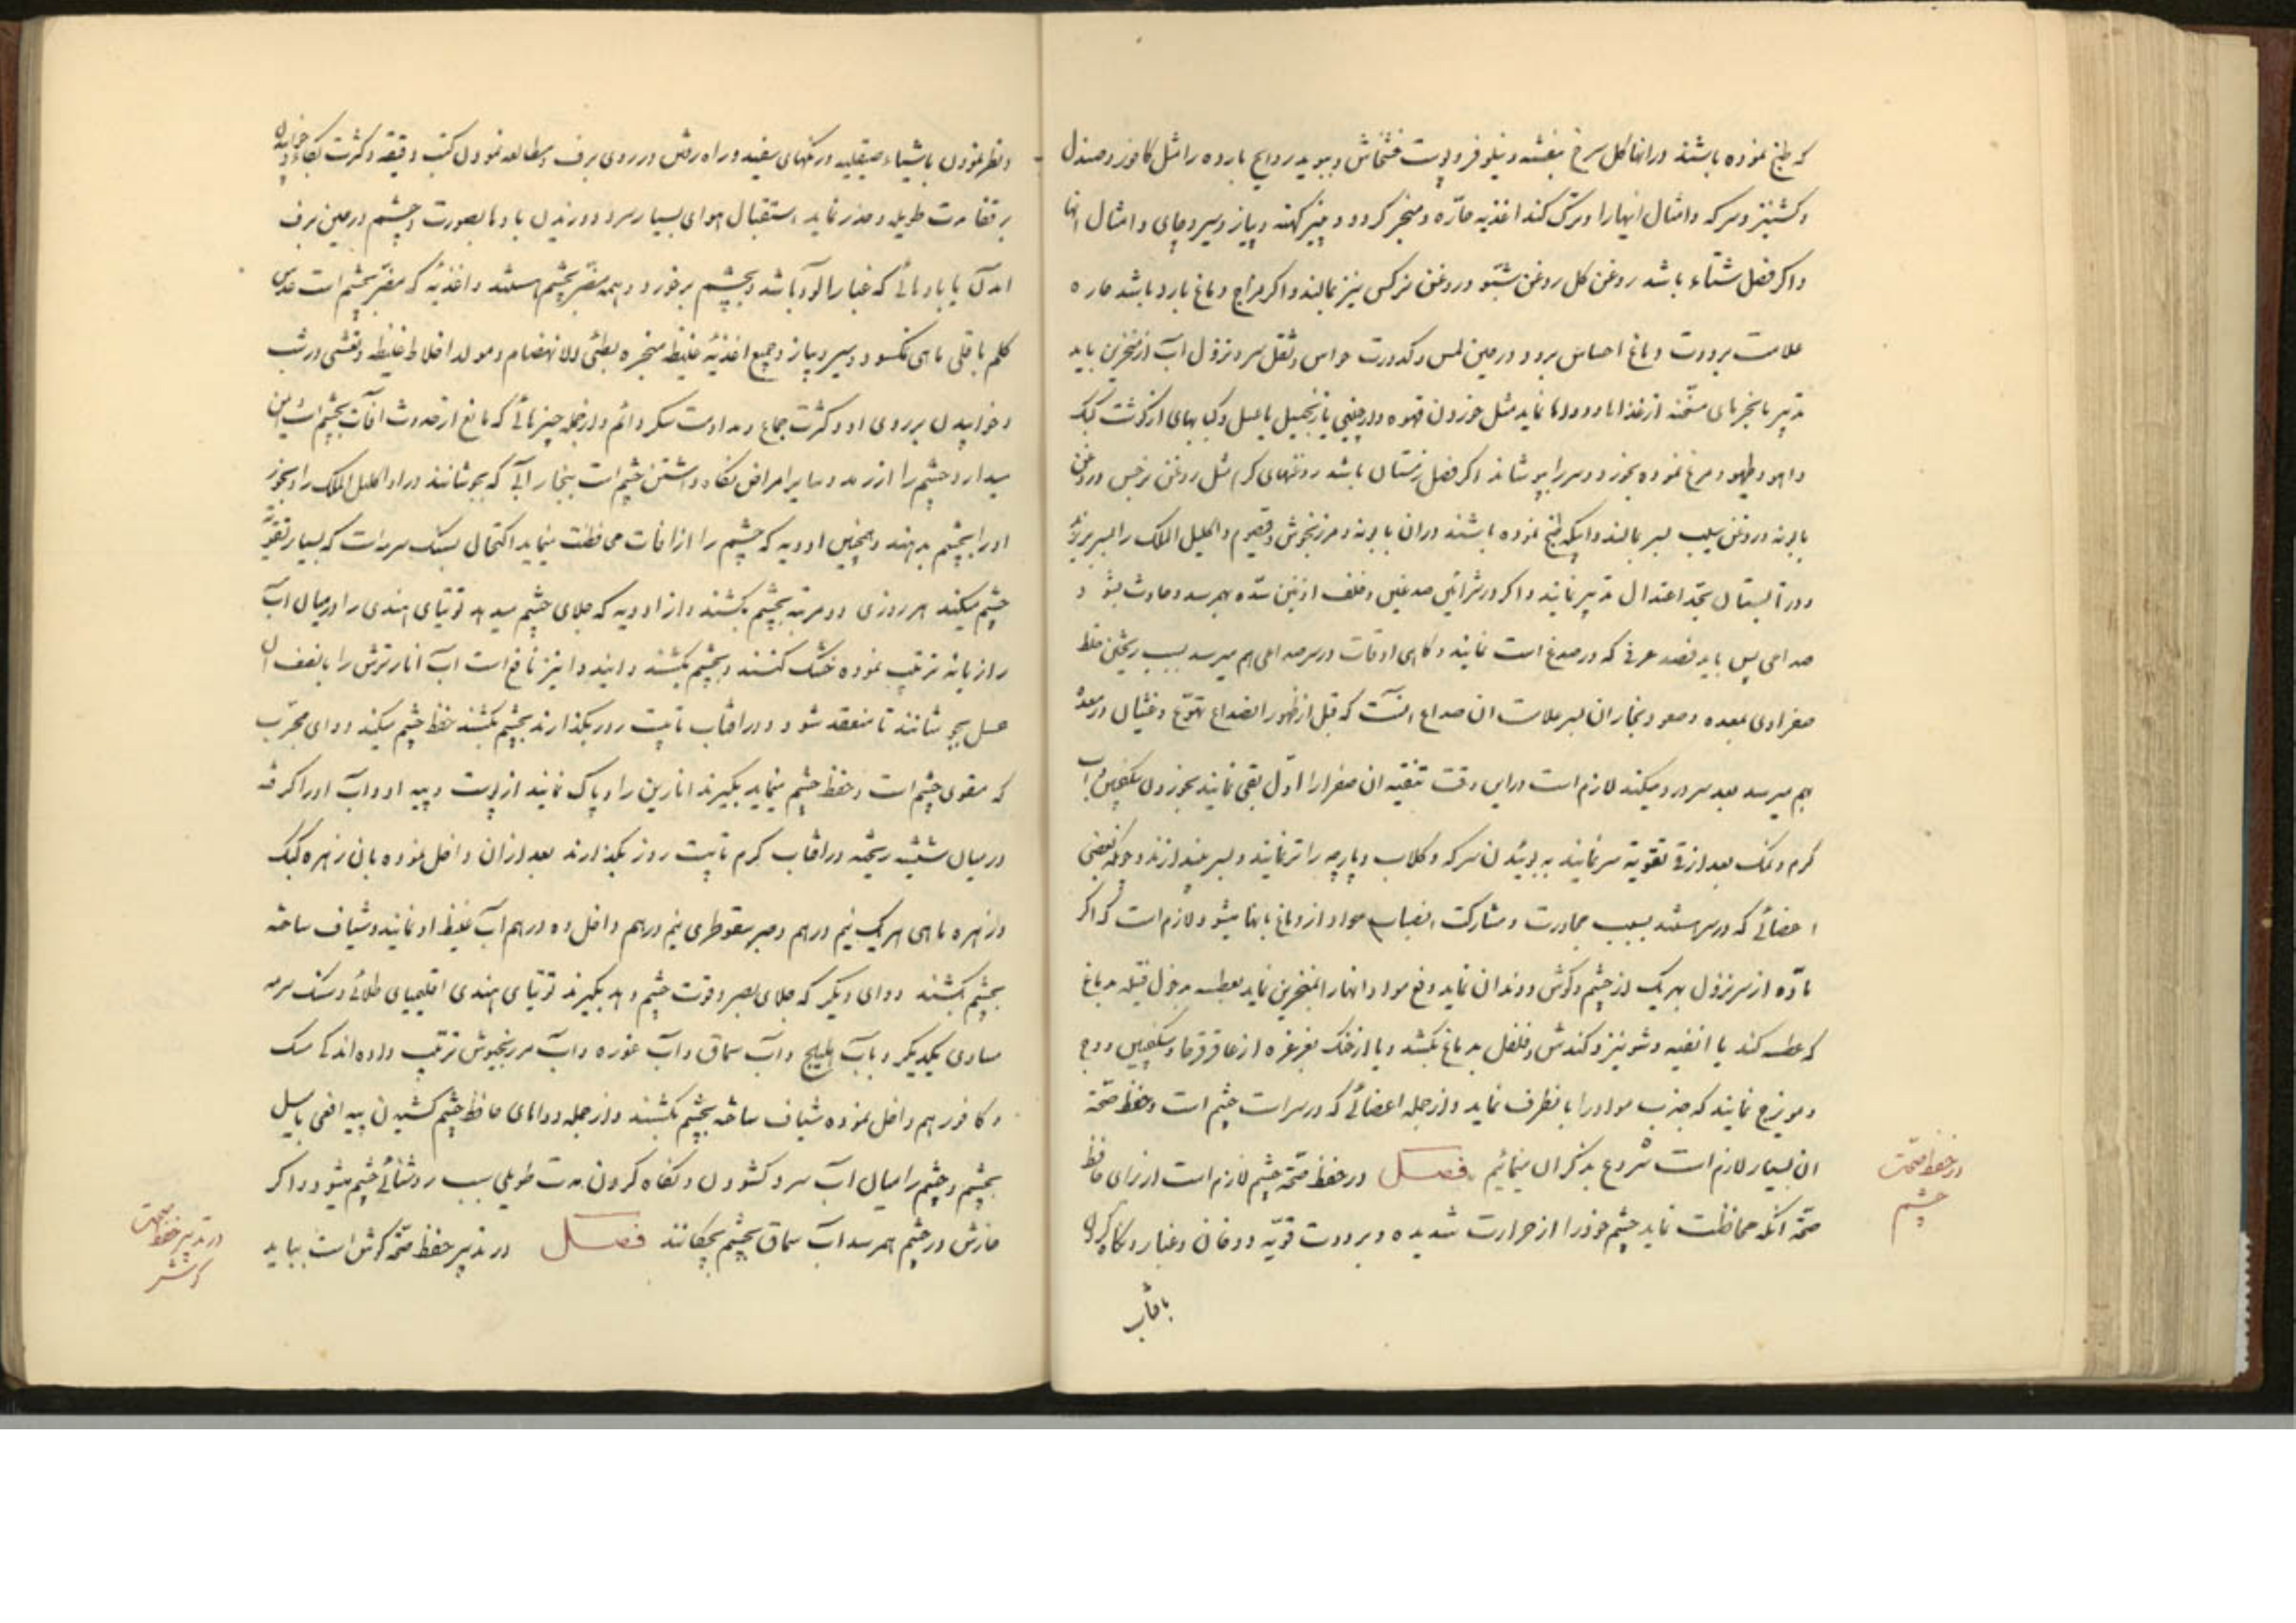 که طبخ نموده باشند در انها کل سرخ بنفشه و نیلوفر و پوست خشخاش و ببوید روایح بارده را مثل کافور و صندل
و کشنیز و سرکه و امثال اینها را و ترک کند اغذیه حارّه و مبخر کردو و پنیر کهنه و پیاز و سیر و چای و امثال انها
و اکر فصل شتاء باشد روغن کل روغن شبّو و روغن نرکس نیز بمالند و اکر مزاج دماغ بارد باشد حاره
علامت برودت دماغ احساس برد و در حین لمس و کدورت حواس و ثقل سر و نزول آب از منخرین باید
تدبیر بانجیرهای مسخّنه از غذاها و دواها نماید مثل خوردن قهوه و دارچینی یا زنجبیل یا عسل و کبابهای از کوشت کبک
و اهو و طیهو و مرغ نموده بخورد و سر را بپوشاند اکر فصل زمستان باشد روغنهای کرم مثل روغن نرجس و روغن
بابونه و روغن سیب بسر بمالند و ابیکه طبخ نموده باشند در ان بابونه و مرزنجوش و قیصوم و اکلیل الملک را بسر بریزند
و در تابستان بحّد اعتدال تدبیر نمایند و اکر در شرائین صدغین و خلف اذنین سدّه بهمرسد و حادث شود
صداعی پس باید فصد عرقی که در صدغ است نمایند و کاهی اوقات در سر صداعی بهم میرسد بسبب ریختن خلط
صفراوی بمعده و صعود بخار ان بسر علامت ان صداع انست که قبل از ظهور انصداع تهوّع و غثیان در معده
بهم میرسد بعد سر درد میکند لازم است در این وقت تنقیه ان صفرا را اوّل بقی نمایند بخوردن سکنجبین و آب
کرم و نمک بعد از قی تقویة سر نمایند به بوئیدن سرکه و کلاب و پارچه را تر نمایند و بسر بیندازند و چونکه بعضی
اعضائی که در سر هستند بسبب مجاورت و مشارکت انصباب مواد از دماغ بانها میشود لازم است که اکر
مادّه از سر نزول بهر یک از چشم و کوش و دندان نماید دفع مواد انها را بمنخرین نماید بعطسه بدخول فتیله بدماغ
که عطسه کند یا انفیه و شونیز و کندش و فلفل بدماغ بکشد و یا از خنک بغرغره از عاقرقرحا و سکنجبین و وج
و مویزج نمایند که جذب مواد را بانطرف نماید و از جمله اعضائی که در سر است چشم است و حفظ صحّة
ان بسیار لازم است شروع بذکر ان مینمائیم فصل در حفظ صحّة چشم لازم است از برای حافظ
صحّة انکه محافظت نماید چشم خود را از حرارت شدیده و برودت قویّه و دخان و غبار و نکاه کردن
بافتاب
در حفظ صحّت
چشم
و نظر نمودن باشیاء صیقلیه و رنکهای سفید و راه رفتن در روی برف و مطالعه نمودن کتب دقیقه و کثرت بکاء و خوابیدن
بر قفا مدت طویله و حذر نماید استقبال هوای بسیار سرد و وزیدن بادها بصورت و چشم در حین برف
امدن یا بادهائی که غبار الود باشد و بچشم برخورد و همه مضّر بچشم هستند و اغذیه که مضّر بچشم است عدس
کلم باقلی ماهی نمکسود و سیر و پیاز و جمیع اغذیهٔ غلیظ مبخره بطئی الانهضام و مولد اخلاط غلیظه و تعشی در شب
و خوابیدن بر روی او و کثرت جماع و مداومت سکر دائم و از جمله چیزهائی که مانع از حدوث افات بچشم است این
میدارد چشم را از رمد و سایر امراض نکاه داشتن چشم است ببخار آبی که بجوشانند در او اکلیل الملک را و بخور
او را بچشم بدهند و همچنین ادویه که چشم را از افات محافظت مینماید اکتحال بسنک سرمه است که بسیار تقویة
چشم میکند هر روزی دو مرتبه بچشم بکشند و از ادویه که جلای چشم میدهد توتیای هندی را در میان آب
رازیانه ترتیب نموده خشک کنند و بچشم بکشند و ایندوا نیز نافع است اب انار ترش را با نصف ان
عسل بجوشانند تا منعقد شود و در افتاب تا بیست روز بکذارند بچشم بکشند حفظ چشم میکند دوای مجرّب
که مقوی چشم است و حفظ چشم مینماید بکیرند انارین را و پاک نمایند از پوست و پیه او و اب او را کرفته
در میان شیشه ریخته در افتاب کرم تا بیست روز بکذارند بعد از ان داخل نموده بان زهره کبک
و زهره ماهی هر یک نیم درهم و صبر سقوطری نیم درهم داخل ده درهم آب غلیظ او نمایند و شیاف ساخته
بچشم بکشند دوای دیکر که جلای بصر و قوت چشم دهد بکیرند توتیای هندی اقلیمیای طلائی و سنک سرمه
مساوی یکدیکر و باب هلیلج و آب سماق و آب غوره و آب مرزنجوش ترتیب داده اندکی مسک
و کافور هم داخل نموده شیاف ساخته بچشم بکشند و از جمله دواهای حافظ چشم کشیدن پیه افعی با عسل
بچشم و چشم را میان اب سرد کشودن و نکاه کردن مدت طویلی سبب روشنائی چشم میشود و اکر
خارش در چشم بهمرسد اب سماق بچشم بچکانند فصل در تدبیر حفظ صحّة کوش است بباید
در تدبیر حفظ صحت
کوش